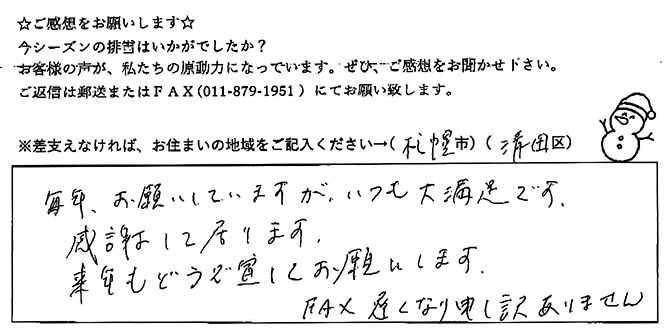 ☆ご感想をお願いします☆
今シーズンの排雪はいかがでしたか？
お客様の声が、私たちの原動力になっています。ぜひ、ご感想をお聞かせ下さい。
ご返信は郵送またはＦＡＸ(011-879-1951）にてお願い致します。
※差支えなければ、お住まいの地域をご記入ください→(札幌市)(清田区)
毎年、お願いしていますが、いつも大満足です。
感謝して居ります。
来年もどうぞ宜しくお願いします。
FAX 遅くなり申し訳ありません